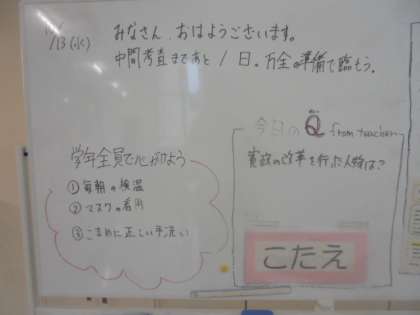 13(水)
みなさん、おはようございます。
中間考査まであと1日。万全の準備で臨もう。
学年全員で心がけよう
①毎朝の検温
②マスクの着用
③こまめに正しい手洗い
今日のQ from teachers
寛政の改革を行った人物は?
こたえ